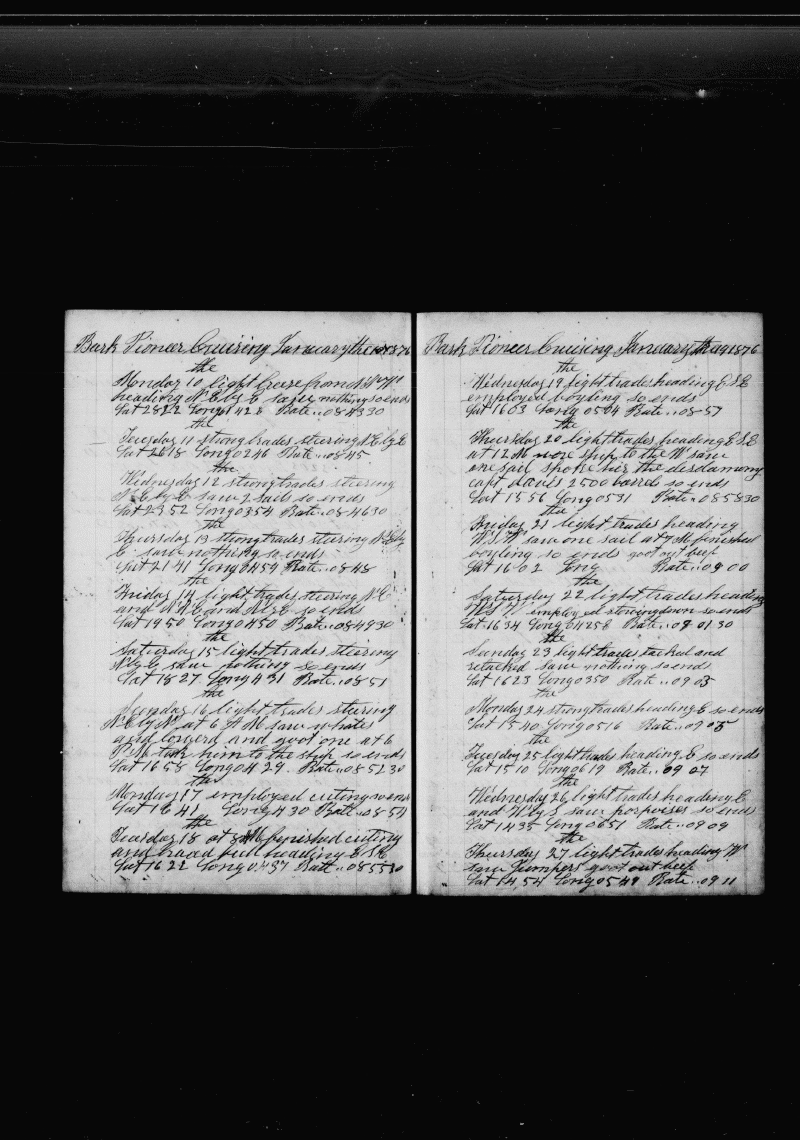 Bark Pioneer Cruising January the 10 1876
the
Monday 10 light breeze from N N W
heading N E by E saw nothing so ends
Lat 28 22 Long 01 42 8 Rate .. 08 43 30
the
Tuesday 11 strong trades steering N E by E
Lat 26 18 Long 02 46 Rate .. 08 45
the
Wednesday 12 strong trades steering
N E by E saw 2 sails so ends
Lat 23 52 Long 03 54 Rate .. 08 46 30
the
Thursday 13 strong trades steering N E by
E saw nothing so ends
Lat 21 41 Long 04 59 Rate .. 08 48
the
Friday 14 light trades steering N E
and N N E and N E so ends
Lat 19 50 Long 04 50 Rate .. 08 49 30
the
Saturday 15 light trades steering
N by E saw nothing so ends
Lat 18 27 Long 4 31 Rate .. 08 51
the
Sunday 16 light trades steering
N E by N at 6 A M saw whales
and lowerd and goot one at 6
P M took him to the ship so ends
Lat 16 58 Long 04 29 Rate .. 08 52 30
the
Monday 17 employed cuting so ends
Lat 16 41 Long 4 30 Rate .. 08 54
the
Tuesday 18 at 8 A M finished cuting
and braced full heading E S E
Lat 16 22 Long 04 37 Rate .. 08 55 30
Bark Pioneer Cruising January the 19 1876
the
Wednesday 19 light trades heading E S E
employed boyling so ends
Lat 16 03 Long 05 04 Rate .. 08 57
the
Thursday 20 light trades heading E S E
at 12 M wore ship to the W saw
one sail spoke her the desdamony
capt davis 2500 barrels so ends
Lat 15 56 Long 05 31 Rate .. 08 58 30
the
Friday 21 light trades heading
W S W saw one sail at 7 M finished
boyling so ends goot out beef
Lat 16 02 Long Rate .. 09 00
the
Saturday 22 light trades heading
W S W employed stowing down so ends
Lat 16 34 Long 04 25 8 Rate .. 09 01 30
the
Sunday 23 light trades tacked and
retacked saw nothing so ends
Lat 16 23 Long 03 50 Rate .. 09 03
the
Monday 24 strong trades heading E so ends
Lat 15 40 Long 05 16 Rate .. 09 05
the
Tuesday 25 light trades heading E so ends
Lat 15 10 Long 06 19 Rate .. 09 07
the
Wednesday 26 light trades heading E
and W by S saw porpoises so ends
Lat 14 35 Long 06 51 Rate .. 09 09
the
Thursday 27 light trades heading W
saw Jumpers goot out beef
Lat 14 54 Long 05 49 Rate .. 09 11